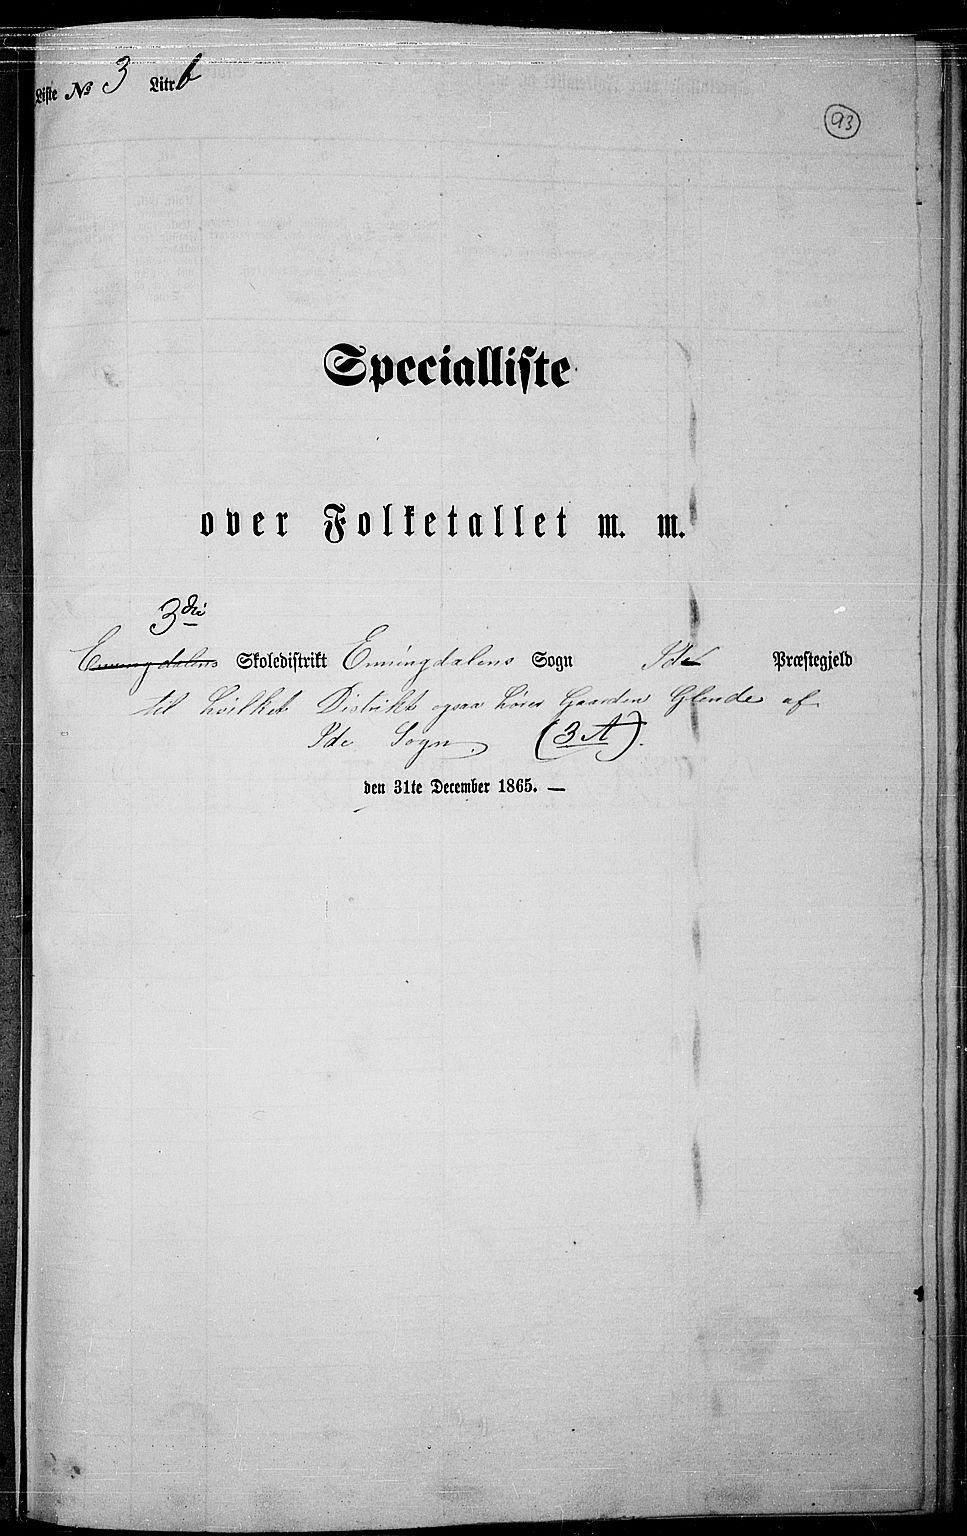 Liste No 3 Litr b
93
Specialliste
over Folketallet m. m.
3die
Enningdalens Skoledistrikt Enningdalens Sogn Ide Præstegjeld
til hvilket Distrikt ogsaa hører Gaarden Glende af
Ide Sogn. (3 A).
den 31te December 1865. —